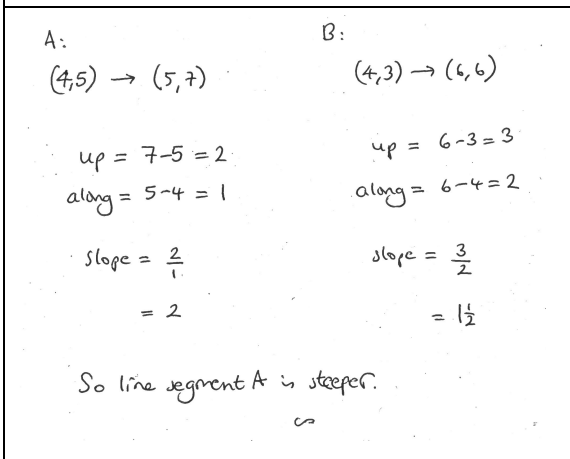 A:
(4,5) → (5,7)
up = 7-5 = 2
along = 5-4 = 1
slope = 2/1
= 2
B:
(4,3) → (6,6)
up = 6-3 = 3
along = 6-4 = 2
slope = 3/2
= 1½
So line segment A is steeper.